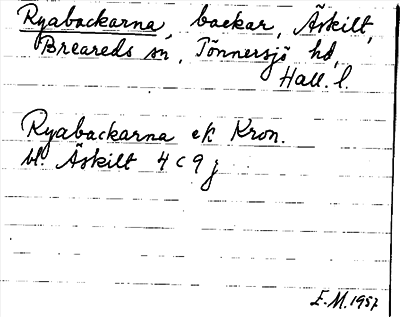 Ryabackarna, backar, Äskilt,
Breareds sn, Tönnersjö hd,
Hall. l.
Ryabackarna ek Kron.
bl. Äskilt 4 c 9 j
E.M. 1957